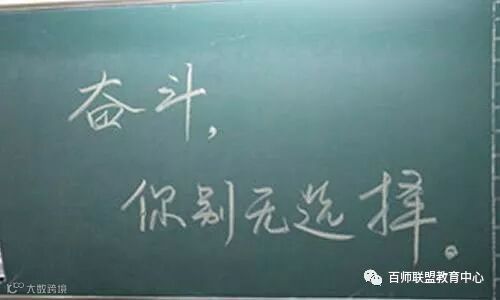 奋斗，
你别无选择。
大数跨境
百师联盟教育中心